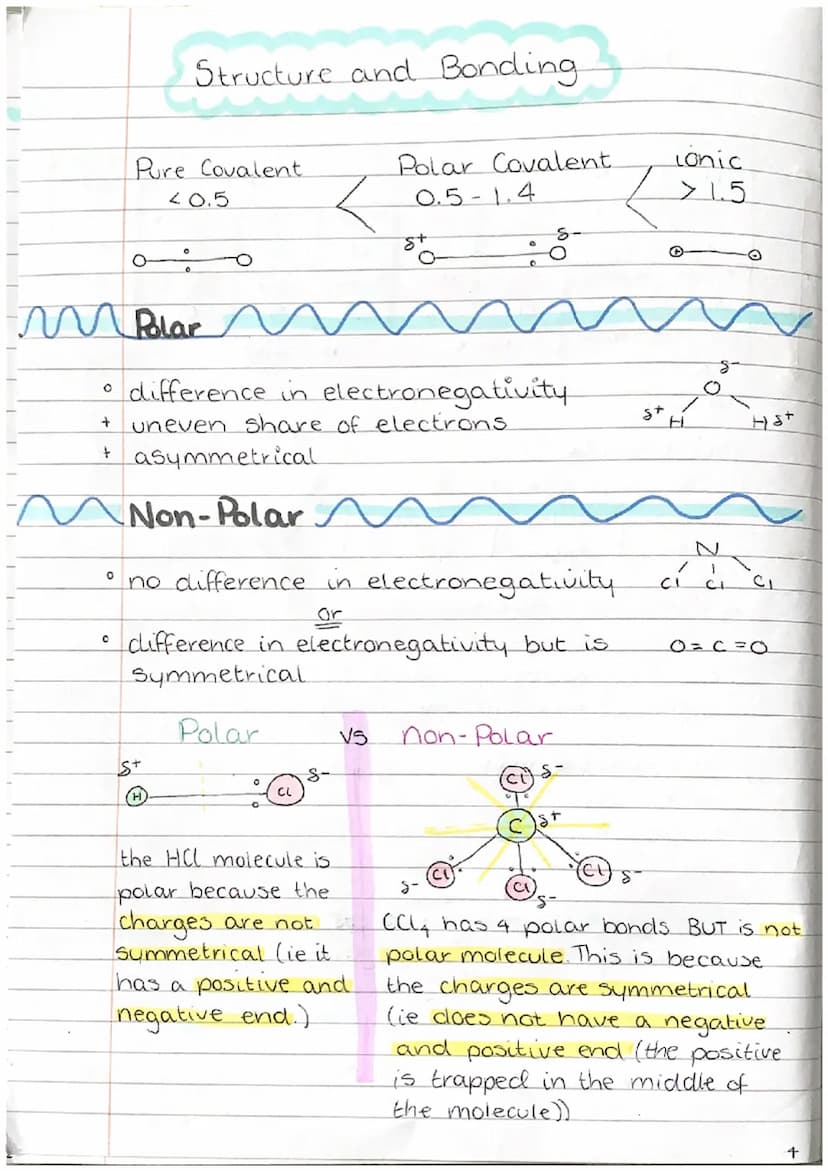 Structure and Bonding
Pure Covalent
< 0.5
<
Polar Covalent
0.5 - 1.4
<
ionic
> 1.5
δ+
δ-
+
-
Polar
° difference in electronegativity
+ uneven share of electrons
+ asymmetrical
δ-
O
δ+ H H δ+
Non-Polar
° no difference in electronegativity
or
° difference in electronegativity but is
symmetrical
N
Cl Cl Cl
O=C=O
Polar vs non-Polar
δ+
H Cl δ-
the HCl molecule is
polar because the
charges are not
symmetrical (ie it
has a positive and
negative end.)
Cl δ-
C δ+
δ- Cl Cl δ- Cl δ-
CCl4 has 4 polar bonds BUT is not
polar molecule. This is because
the charges are symmetrical
(ie does not have a negative
and positive end (the positive
is trapped in the middle of
the molecule))
4